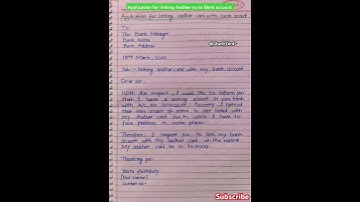 Application for linking Aadhar no to Bank account
Application for linking Aadhar card with bank account
To
The Bank Manager
Bank Name
Bank Address
15th March, 2022
Sub:- linking Aadhar card with my bank account
Dear sir
With due respect, I would like to inform you
that I have a saving account in your bank
with A/c no
that this account of mine is not linked with
my Aadhar card due to which I have to
face problems in some places.
Therefore, I request you to link my bank
account with my Aadhar card at the earliest
My aadhar card no is
Thanking you
Yours faithfully
(Your name)
Subscribe